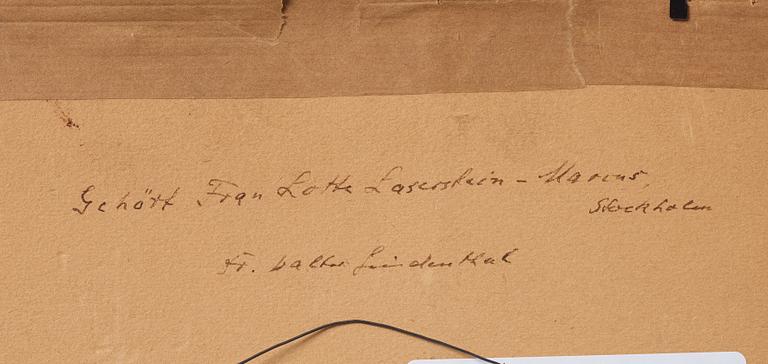 Gehört Frau Lotte Laserstein - Marcus,
Stockholm
Fr. Walter Lindenthal